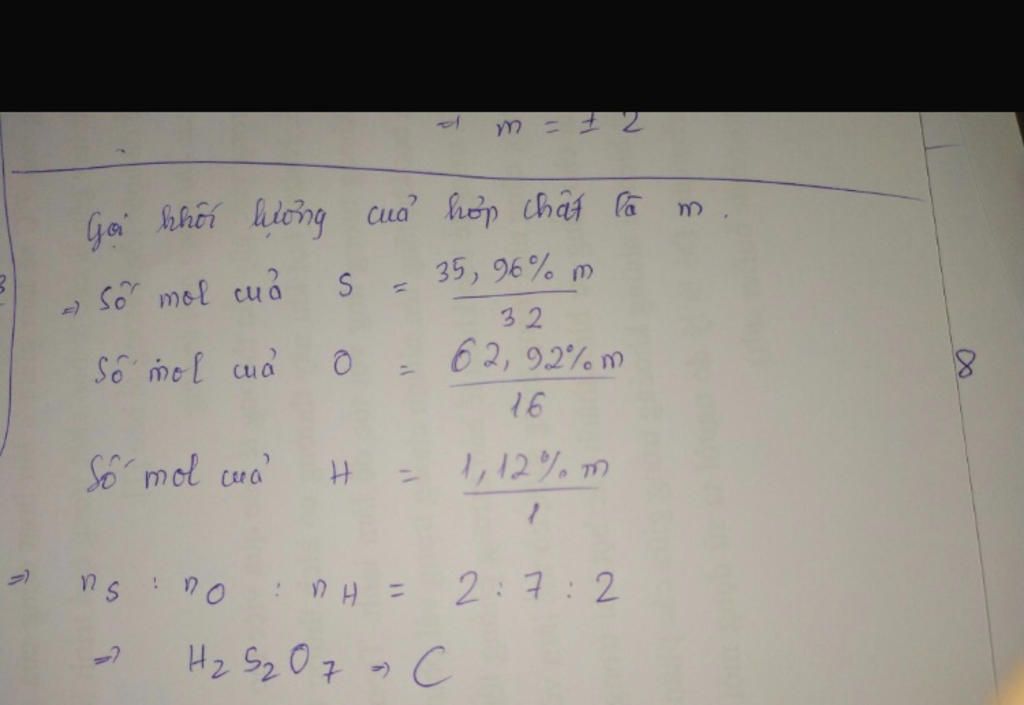 => m = ± 2
Gọi khối lượng của hợp chất là m.
=> Số mol của S = 35,96% m / 32
Số mol của O = 62,92% m / 16
8
Số mol của H = 1,12% m / 1
=> nS : nO : nH = 2 : 7 : 2
=> H2S2O7 => C